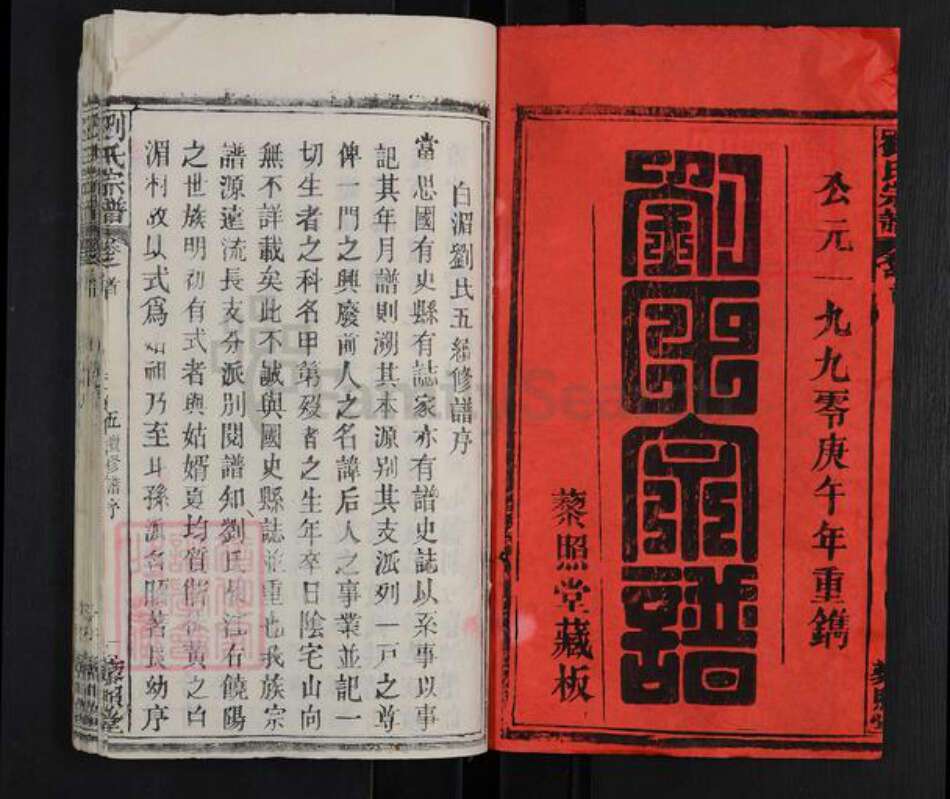 公元一九九零庚午年重鐫
劉氏宗譜
藜照堂藏板
白湄劉氏五續修譜序
當思國有史縣有誌家亦有譜史誌以系事以事
記其年月譜則溯其本源别其支派列一戸之尊
俾一門之興廢前人之名諱后人之事業並記一
切生者之科名甲第殁者之生年卒日陰宅山向
無不詳載矣此不誠與國史縣誌並重也我族宗
譜源遠流長支分派別閱譜知劉氏
江右饒陽
之世族明初有式者與姑婿夏均質偕
黄之白
湄村故以式爲始祖乃至耳孫派各昭著長幼序
劉氏宗譜
卷之首
五續修譜序
一
藜照堂